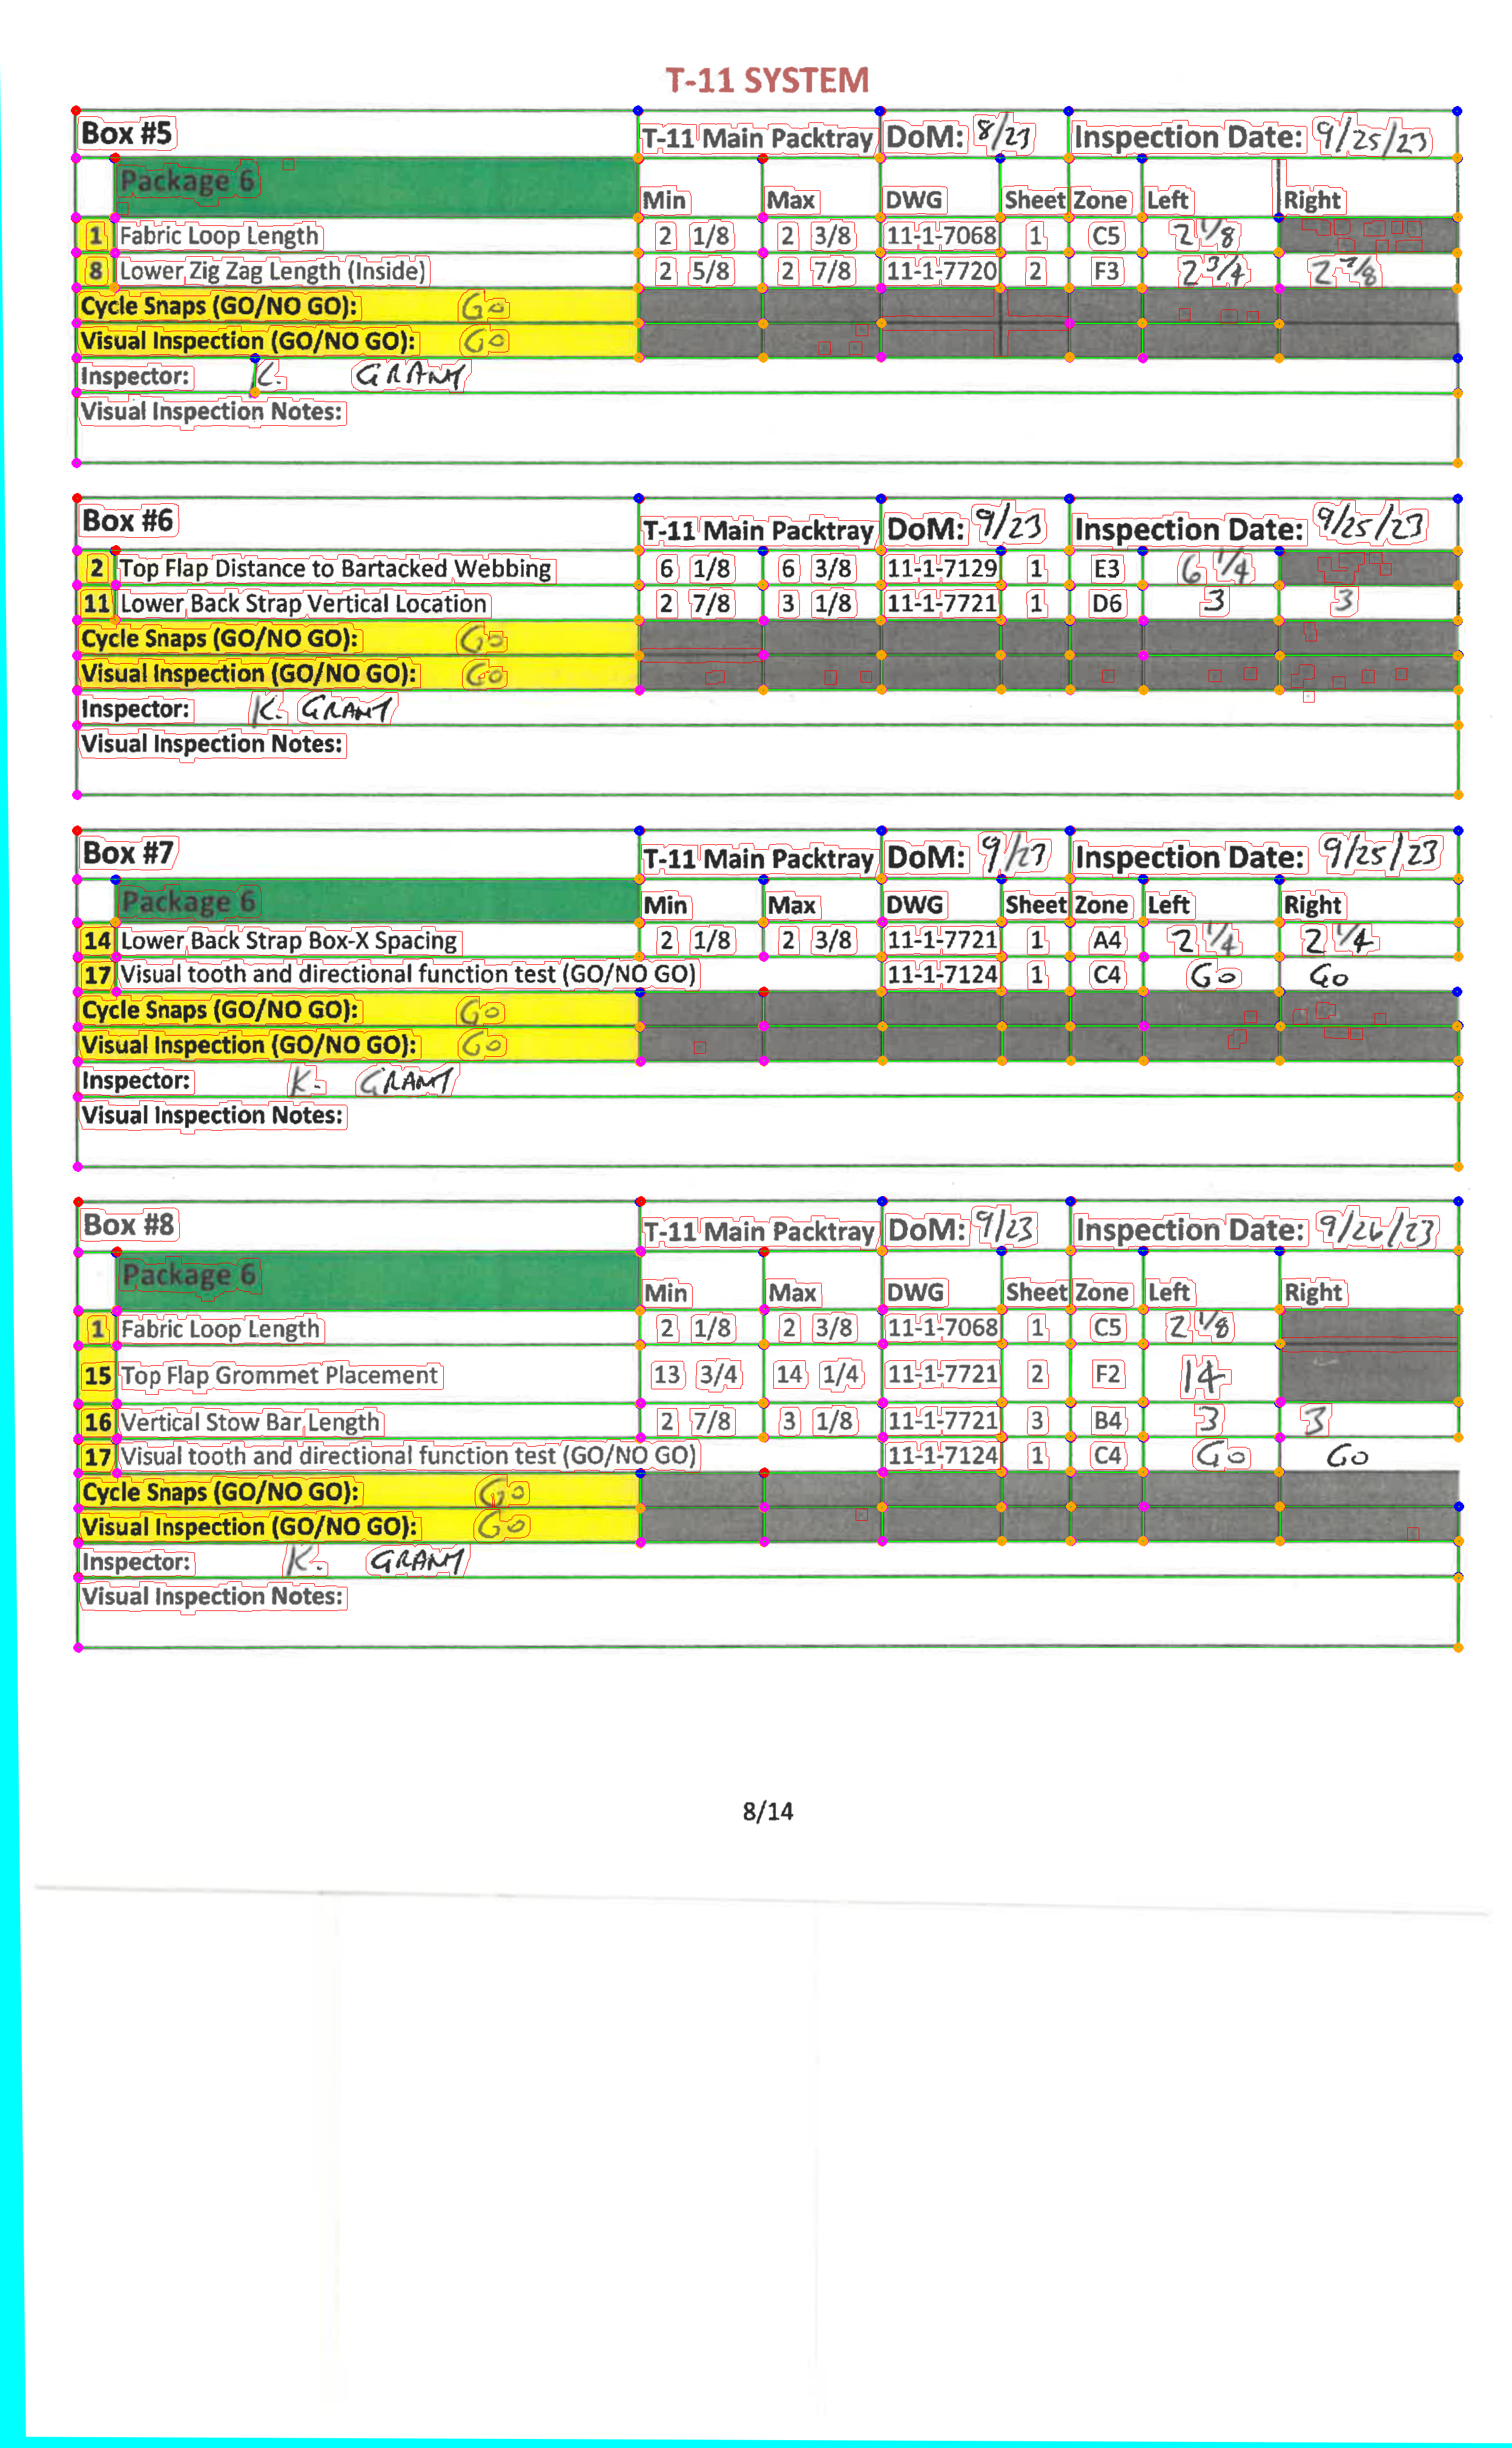 T-11 SYSTEM
Box #5 T-11 Main Packtray DoM: 8/23 Inspection Date: 9/25/23
Package 6 Min Max DWG Sheet Zone Left Right
1 Fabric Loop Length 2 1/8 2 3/8 11-1-7068 1 C5 2 1/8
8 Lower Zig Zag Length (Inside) 2 5/8 2 7/8 11-1-7720 2 F3 2 3/4 2 7/8
Cycle Snaps (GO/NO GO): Go
Visual Inspection (GO/NO GO): Go
Inspector: K. GRANT
Visual Inspection Notes:
Box #6 T-11 Main Packtray DoM: 9/23 Inspection Date: 9/25/23
2 Top Flap Distance to Bartacked Webbing 6 1/8 6 3/8 11-1-7129 1 E3 6 1/4
11 Lower Back Strap Vertical Location 2 7/8 3 1/8 11-1-7721 1 D6 3 3
Cycle Snaps (GO/NO GO): Go
Visual Inspection (GO/NO GO): Go
Inspector: K. GRANT
Visual Inspection Notes:
Box #7 T-11 Main Packtray DoM: 9/23 Inspection Date: 9/25/23
Package 6 Min Max DWG Sheet Zone Left Right
14 Lower Back Strap Box-X Spacing 2 1/8 2 3/8 11-1-7721 1 A4 2 1/4 2 1/4
17 Visual tooth and directional function test (GO/NO GO) 11-1-7124 1 C4 Go Go
Cycle Snaps (GO/NO GO): Go
Visual Inspection (GO/NO GO): Go
Inspector: K. GRANT
Visual Inspection Notes:
Box #8 T-11 Main Packtray DoM: 9/23 Inspection Date: 9/26/23
Package 6 Min Max DWG Sheet Zone Left Right
1 Fabric Loop Length 2 1/8 2 3/8 11-1-7068 1 C5 2 1/8
15 Top Flap Grommet Placement 13 3/4 14 1/4 11-1-7721 2 F2 14
16 Vertical Stow Bar Length 2 7/8 3 1/8 11-1-7721 3 B4 3 3
17 Visual tooth and directional function test (GO/NO GO) 11-1-7124 1 C4 Go Go
Cycle Snaps (GO/NO GO): Go
Visual Inspection (GO/NO GO): Go
Inspector: K. GRANT
Visual Inspection Notes:
8/14